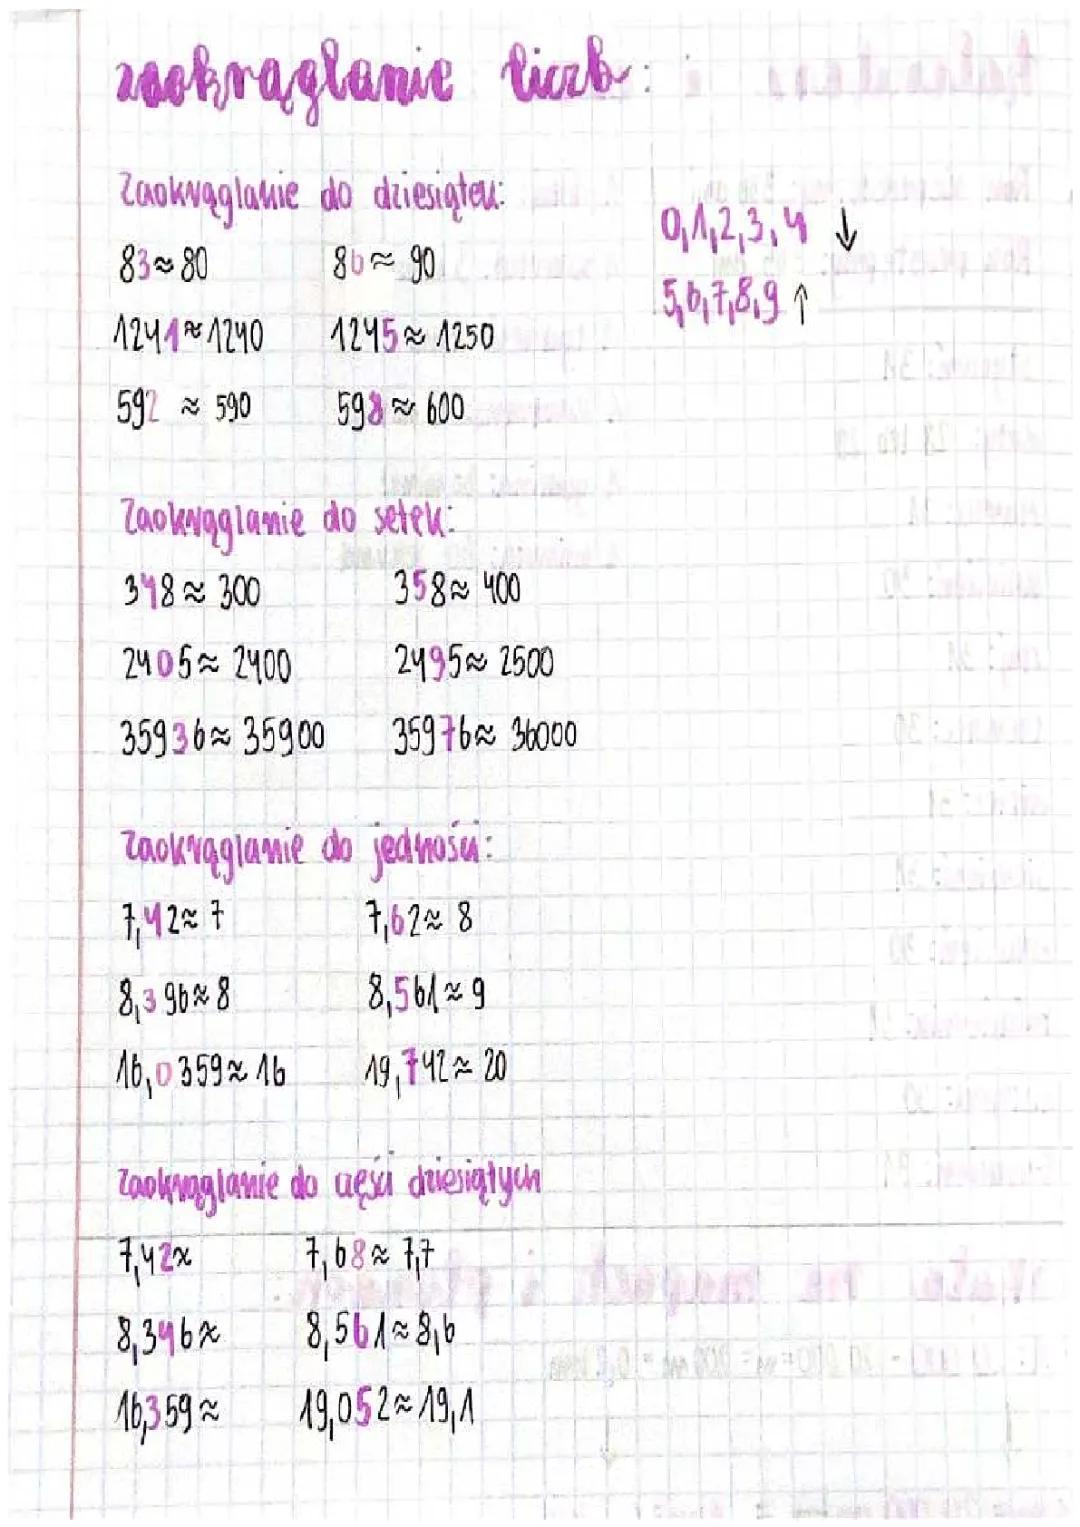 zaokrąglanie liczb:
Zaokrąglanie do dziesiątek:
0,1,2,3,4 ↓
5,6,7,8,9 ↑
83≈80 86≈ 90
1241≈1240 1245≈ 1250
592 ≈ 590 598≈ 600
Zaokrąglanie do setek:
348≈ 300 358≈ 400
2405≈ 2400 2495≈ 2500
35936≈ 35900 35976≈ 36000
Zaokrąglanie do jedności:
7,42≈ 7 7,62≈ 8
8,396≈8 8,561≈9
16,0359≈16 19,742≈ 20
Zaokrąglanie do części dziesiątych
7,42≈ 7,68≈ 7,7
8,346≈ 8,561≈8,6
16,359≈ 19,052≈19,1